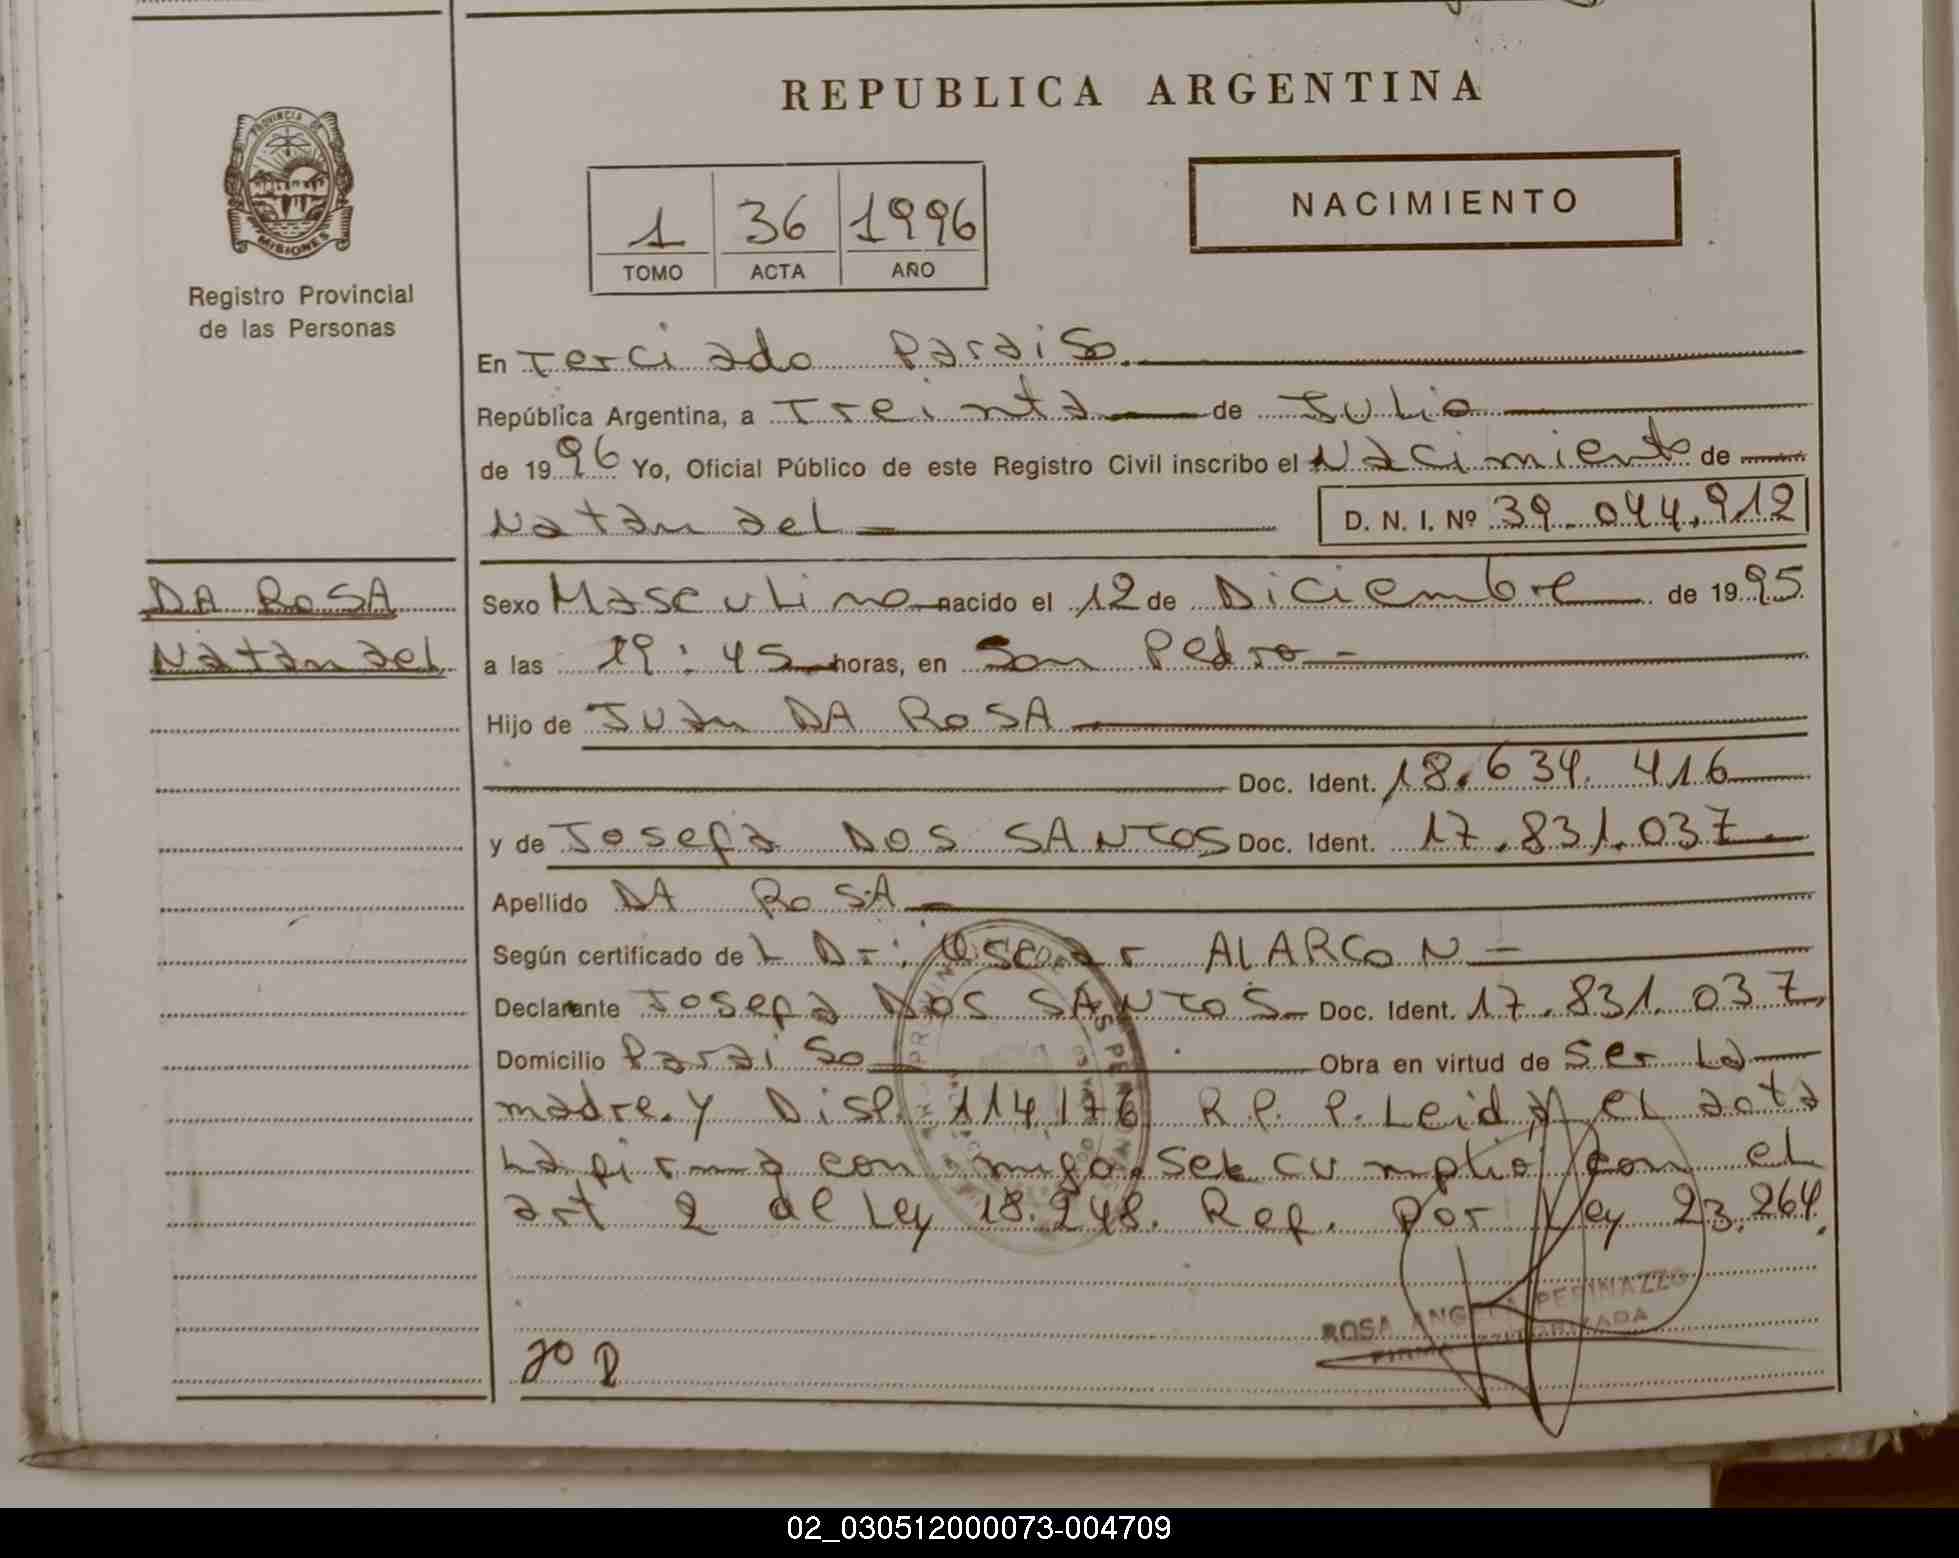 REPUBLICA ARGENTINA
PROVINCIA DE
MISIONES
Registro Provincial
de las Personas
NACIMIENTO
1 36 1996
TOMO ACTA AÑO
En Terciado Paraiso.
República Argentina, a Treinta de Julio
de 1996 Yo, Oficial Público de este Registro Civil inscribo el Nacimiento de
Natanael D. N. I. Nº 39.044.912
DA ROSA
Natanael
Sexo Masculino nacido el 12 de Diciembre de 1995
a las 19:45 horas, en San Pedro
Hijo de Juan DA ROSA
Doc. Ident. 18.634.416
y de Josefa DOS SANTOS Doc. Ident. 17.831.037
Apellido DA ROSA
Según certificado de L Dr: Oscar ALARCON
Declarante Josefa DOS SANTOS Doc. Ident. 17.831.037
Domicilio Paraiso Obra en virtud de ser La
madre. Y Disp. 114/76 R.P.P. Leida el acta
La firma con migo. Se cumplio con el
art 2 de Ley 18.248. Rep. por Ley 23.264.
ROSA ANGELA PERINAZZO
FIRMA AUTORIZADA
02_030512000073-004709